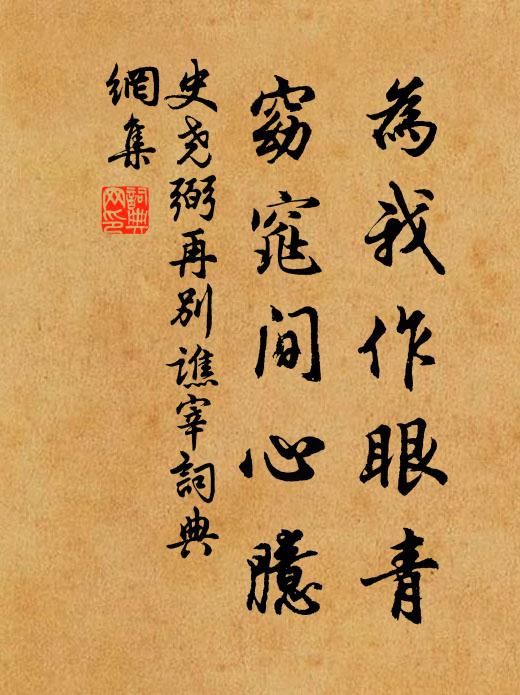 為我作眼青
窈窕間心臆
史堯弼再別譙宰詞典
網集
詞典網印